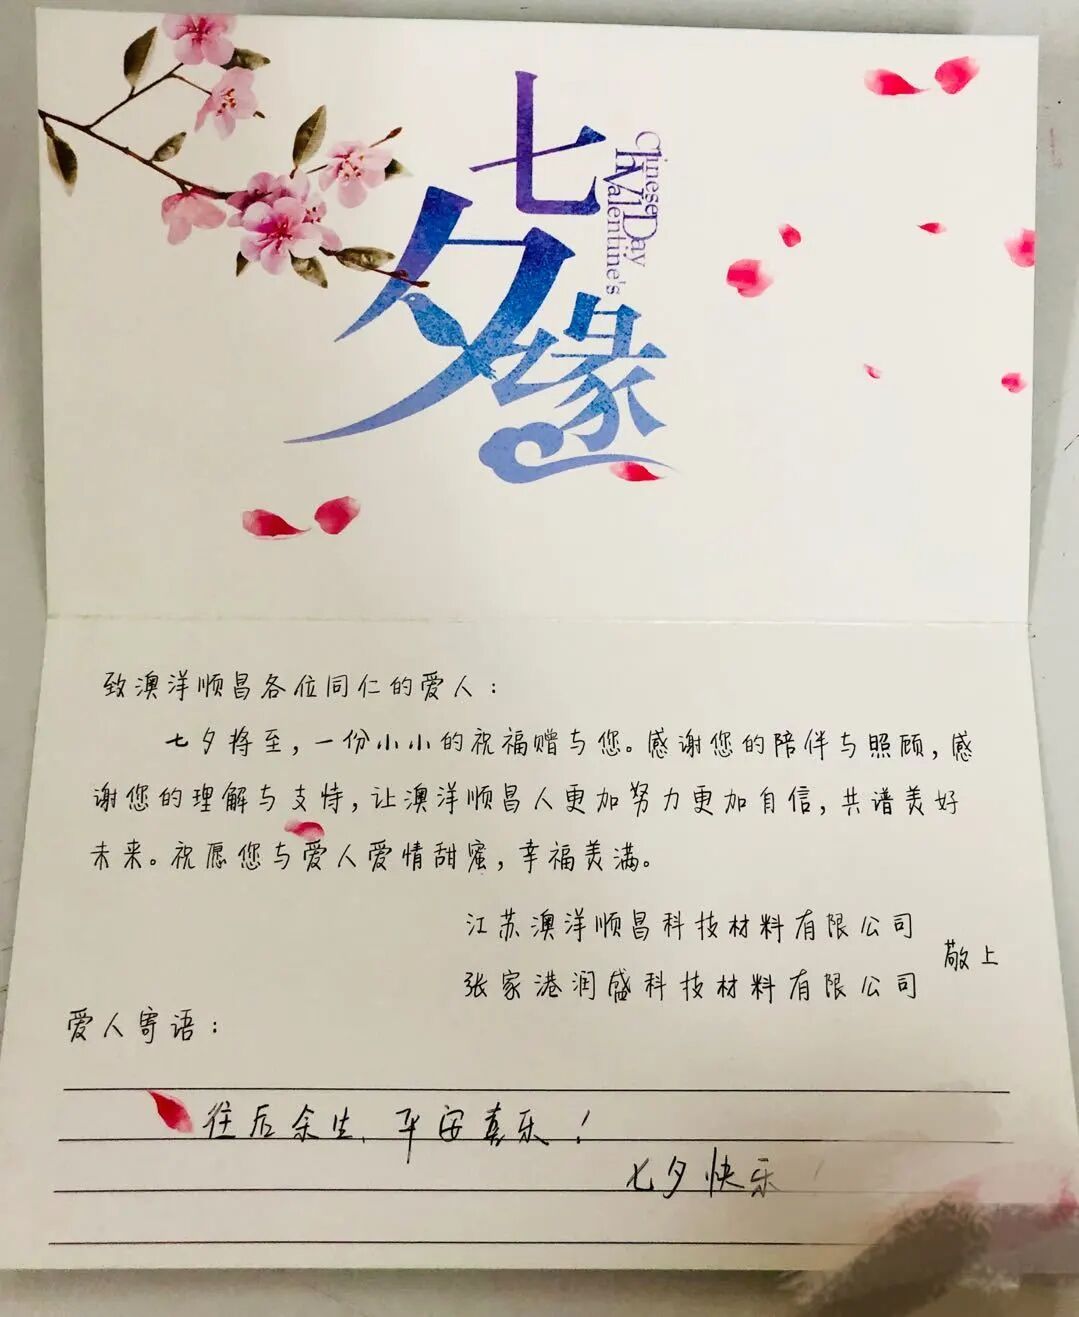 七夕缘
Chinese
Valentine's Day
致澳洋顺昌各位同仁的爱人：
七夕将至，一份小小的祝福赠与您。感谢您的陪伴与照顾，感
谢您的理解与支持，让澳洋顺昌人更加努力更加自信，共谱美好
未来。祝愿您与爱人爱情甜蜜，幸福美满。
江苏澳洋顺昌科技材料有限公司
张家港润盛科技材料有限公司
敬上
爱人寄语：
往后余生、平安喜乐！
七夕快乐！